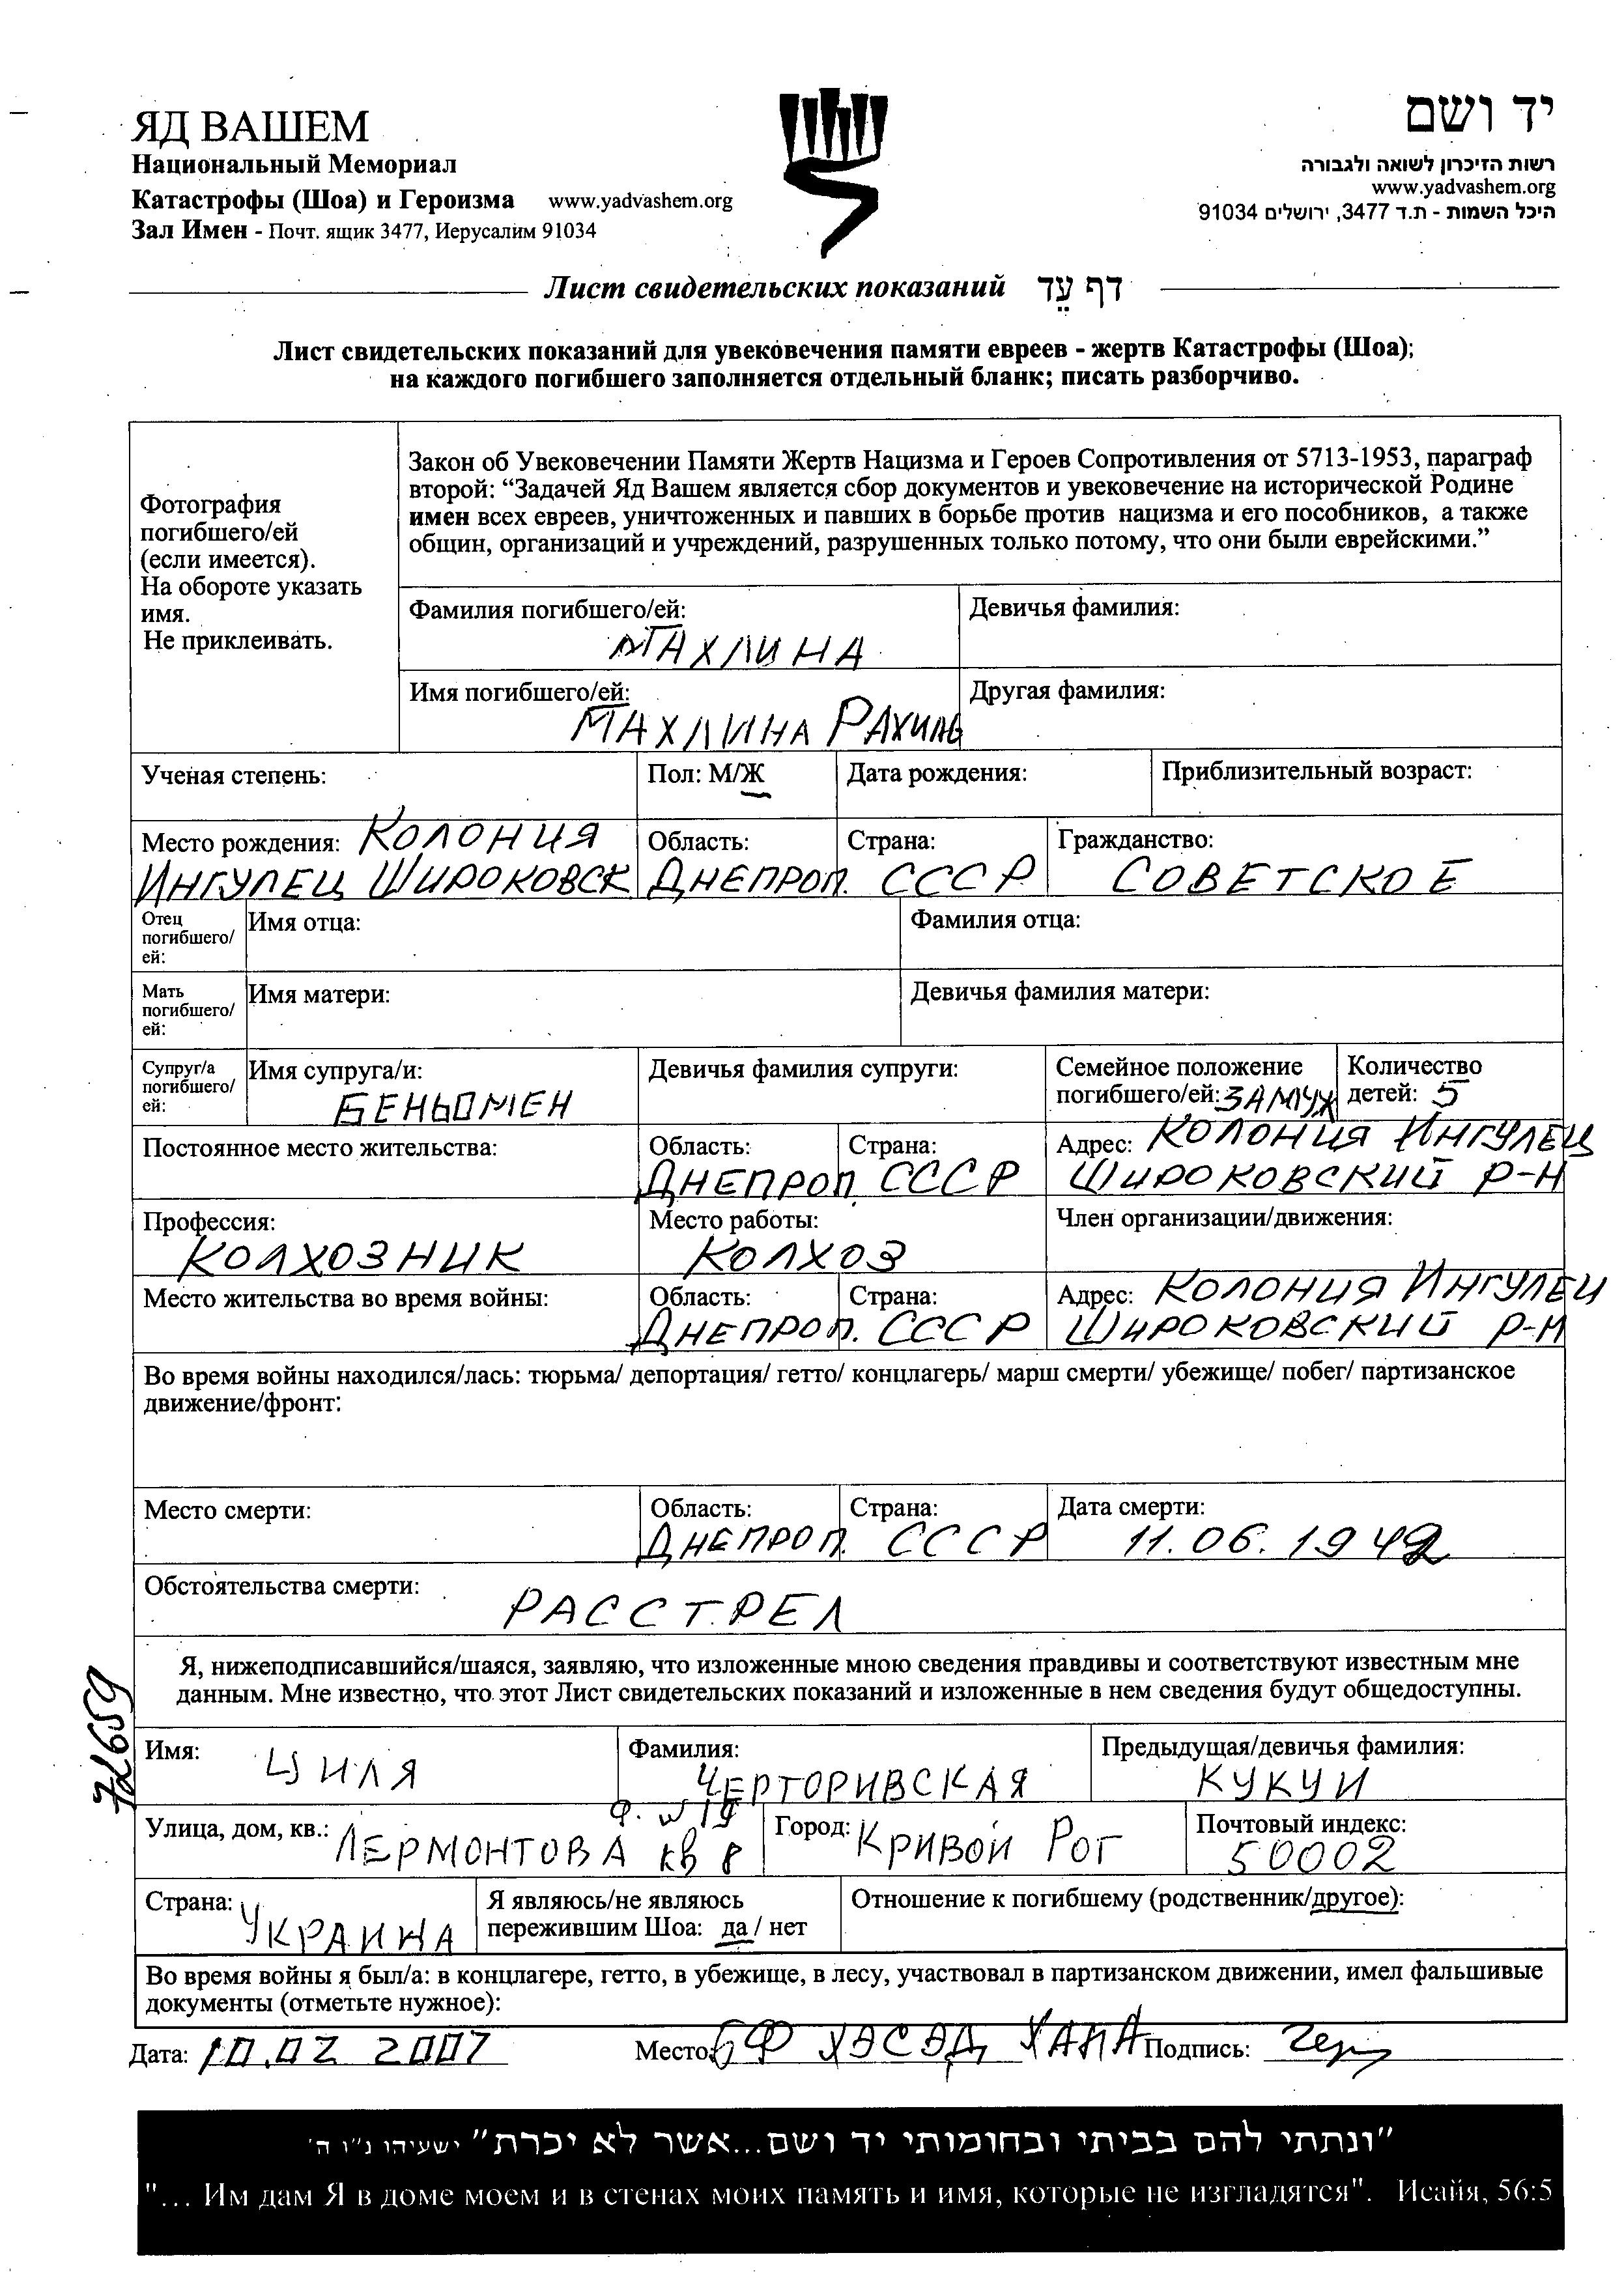 ЯД ВАШЕМ
Национальный Мемориал
Катастрофы (Шоа) и Героизма www.yadvashem.org
Зал Имен - Почт. ящик 3477, Иерусалим 91034
יד ושם
רשות הזיכרון לשואה ולגבורה
www.yadvashem.org
היכל השמות - ת.ד 3477, ירושלים 91034
Лист свидетельских показаний דף עֵד
Лист свидетельских показаний для увековечения памяти евреев - жертв Катастрофы (Шоа);
на каждого погибшего заполняется отдельный бланк; писать разборчиво.
Фотография
погибшего/ей
(если имеется).
На обороте указать
имя.
Не приклеивать.
Закон об Увековечении Памяти Жертв Нацизма и Героев Сопротивления от 5713-1953, параграф
второй: “Задачей Яд Вашем является сбор документов и увековечение на исторической Родине
имен всех евреев, уничтоженных и павших в борьбе против нацизма и его пособников, а также
общин, организаций и учреждений, разрушенных только потому, что они были еврейскими.”
Фамилия погибшего/ей: Девичья фамилия:
МАХЛИНА
Имя погибшего/ей: Другая фамилия:
МАХЛИНА РАХИЛЬ
Ученая степень: Пол: М/Ж Дата рождения: Приблизительный возраст:
Место рождения: КОЛОНИЯ Область: Страна: Гражданство:
ИНГУЛЕЦ ШИРОКОВСК ДНЕПРОП. СССР СОВЕТСКОЕ
Отец
погибшего/
ей:
Имя отца: Фамилия отца:
Мать
погибшего/
ей:
Имя матери: Девичья фамилия матери:
Супруг/а
погибшего/
ей:
Имя супруга/и:
БЕНЬОМЕН
Девичья фамилия супруги:
Семейное положение
погибшего/ей: ЗАМУЖ
Количество
детей: 5
Постоянное место жительства: Область: Страна: Адрес: КОЛОНИЯ ИНГУЛЕЦ
ДНЕПРОП. СССР ШИРОКОВСКИЙ Р-Н
Профессия: Место работы: Член организации/движения:
КОЛХОЗНИК КОЛХОЗ
Место жительства во время войны: Область: Страна: Адрес: КОЛОНИЯ ИНГУЛЕЦ
ДНЕПРОП. СССР ШИРОКОВСКИЙ Р-Н
Во время войны находился/лась: тюрьма/ депортация/ гетто/ концлагерь/ марш смерти/ убежище/ побег/ партизанское
движение/фронт:
Место смерти: Область: Страна: Дата смерти:
ДНЕПРОП. СССР 11.06.1942
Обстоятельства смерти:
РАССТРЕЛ
Я, нижеподписавшийся/шаяся, заявляю, что изложенные мною сведения правдивы и соответствуют известным мне
данным. Мне известно, что этот Лист свидетельских показаний и изложенные в нем сведения будут общедоступны.
72659
Имя: ЦИЛЯ Фамилия: ЧЕРТОРИВСКАЯ Предыдущая/девичья фамилия: КУКУИ
Улица, дом, кв.: ЛЕРМОНТОВА кв 8 Город: КРИВОЙ РОГ Почтовый индекс: 50002
Страна: УКРАИНА
Я являюсь/не являюсь
пережившим Шоа: да / нет
Отношение к погибшему (родственник/другое):
Во время войны я был/а: в концлагере, гетто, в убежище, в лесу, участвовал в партизанском движении, имел фальшивые
документы (отметьте нужное):
Дата: 10.02 2007 Место: БФ ХЭСЭД ХАНА Подпись:
"ונתתי להם בביתי ובחומותי יד ושם...אשר לא יכרת" ישעיהו נ"ו ה'
"... Им дам Я в доме моем и в стенах моих память и имя, которые не изгладятся". Исайя, 56:5